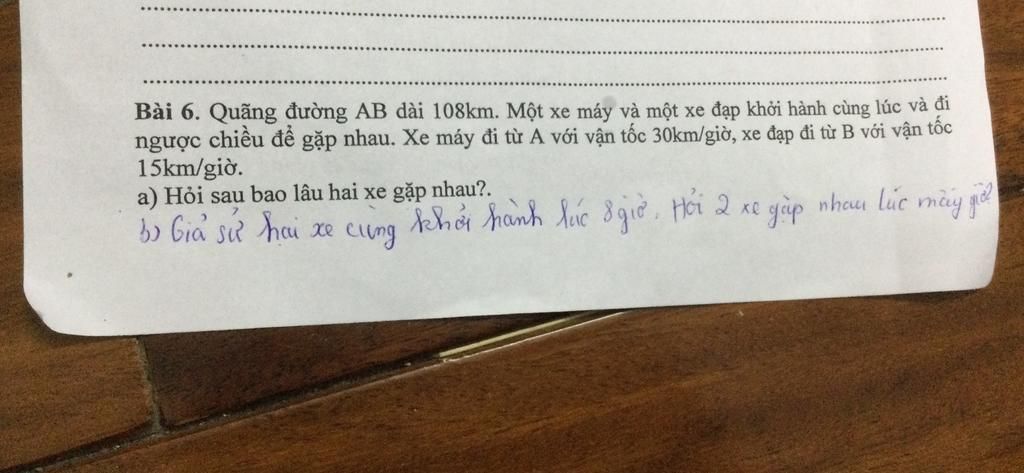 Bài 6. Quãng đường AB dài 108km. Một xe máy và một xe đạp khởi hành cùng lúc và đi
ngược chiều để gặp nhau. Xe máy đi từ A với vận tốc 30km/giờ, xe đạp đi từ B với vận tốc
15km/giờ.
a) Hỏi sau bao lâu hai xe gặp nhau?.
b) Giả sử hai xe cùng khởi hành lúc 8 giờ. Hỏi 2 xe gặp nhau lúc mấy giờ?